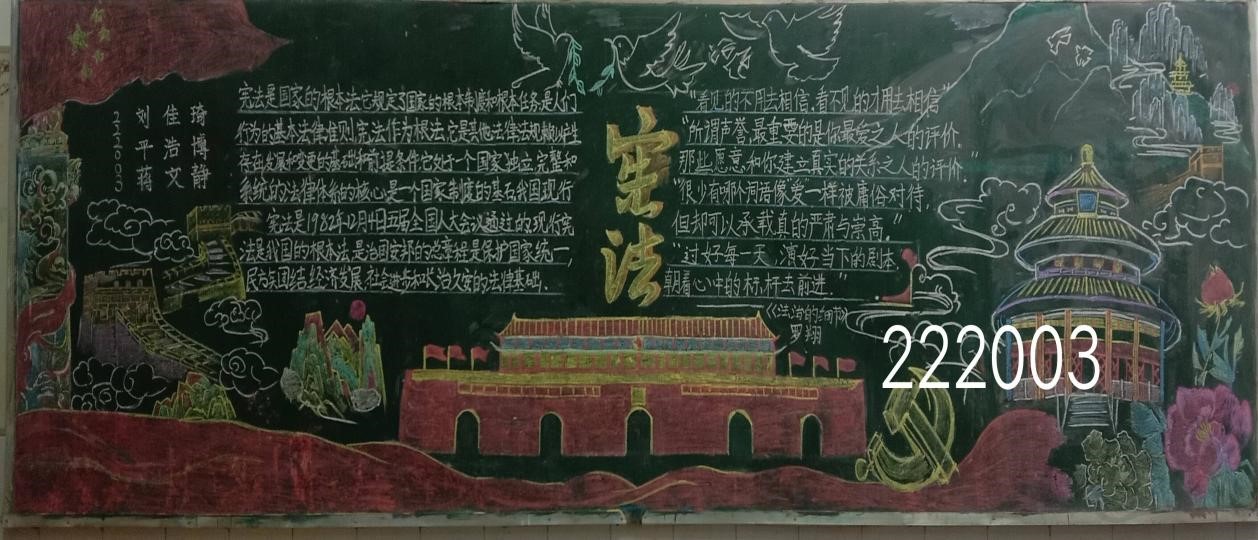 琦博静
佳浩文
刘平蒋
222003
宪法是国家的根本法它规定了国家的根本制度和根本任务是人们
行为的基本法律准则宪法作为根法它是其他法律法规赖以产生
存在发展和变更的基础和前提条件它对于一个国家独立完整和
系统的法律体系的核心是一个国家制度的基石我国现行
宪法是1982年12月4日五届全国人大会议通过的现行宪
法是我国的根本法是治国安邦的总章程是保护国家统一,
民族团结经济发展社会进步和长治久安的法律基础.
宪法
"看见的不用去相信,看不见的才用去相信"
"所谓声誉,最重要的是你最爱之人的评价.
那些愿意和你建立真实的关系之人的评价."
"很少有哪个词语像爱一样被庸俗对待,
但却可以承载真的严肃与崇高."
"过好每一天,演好当下的剧本,
朝着心中的标杆去前进."
《法治的细节》
罗翔
222003